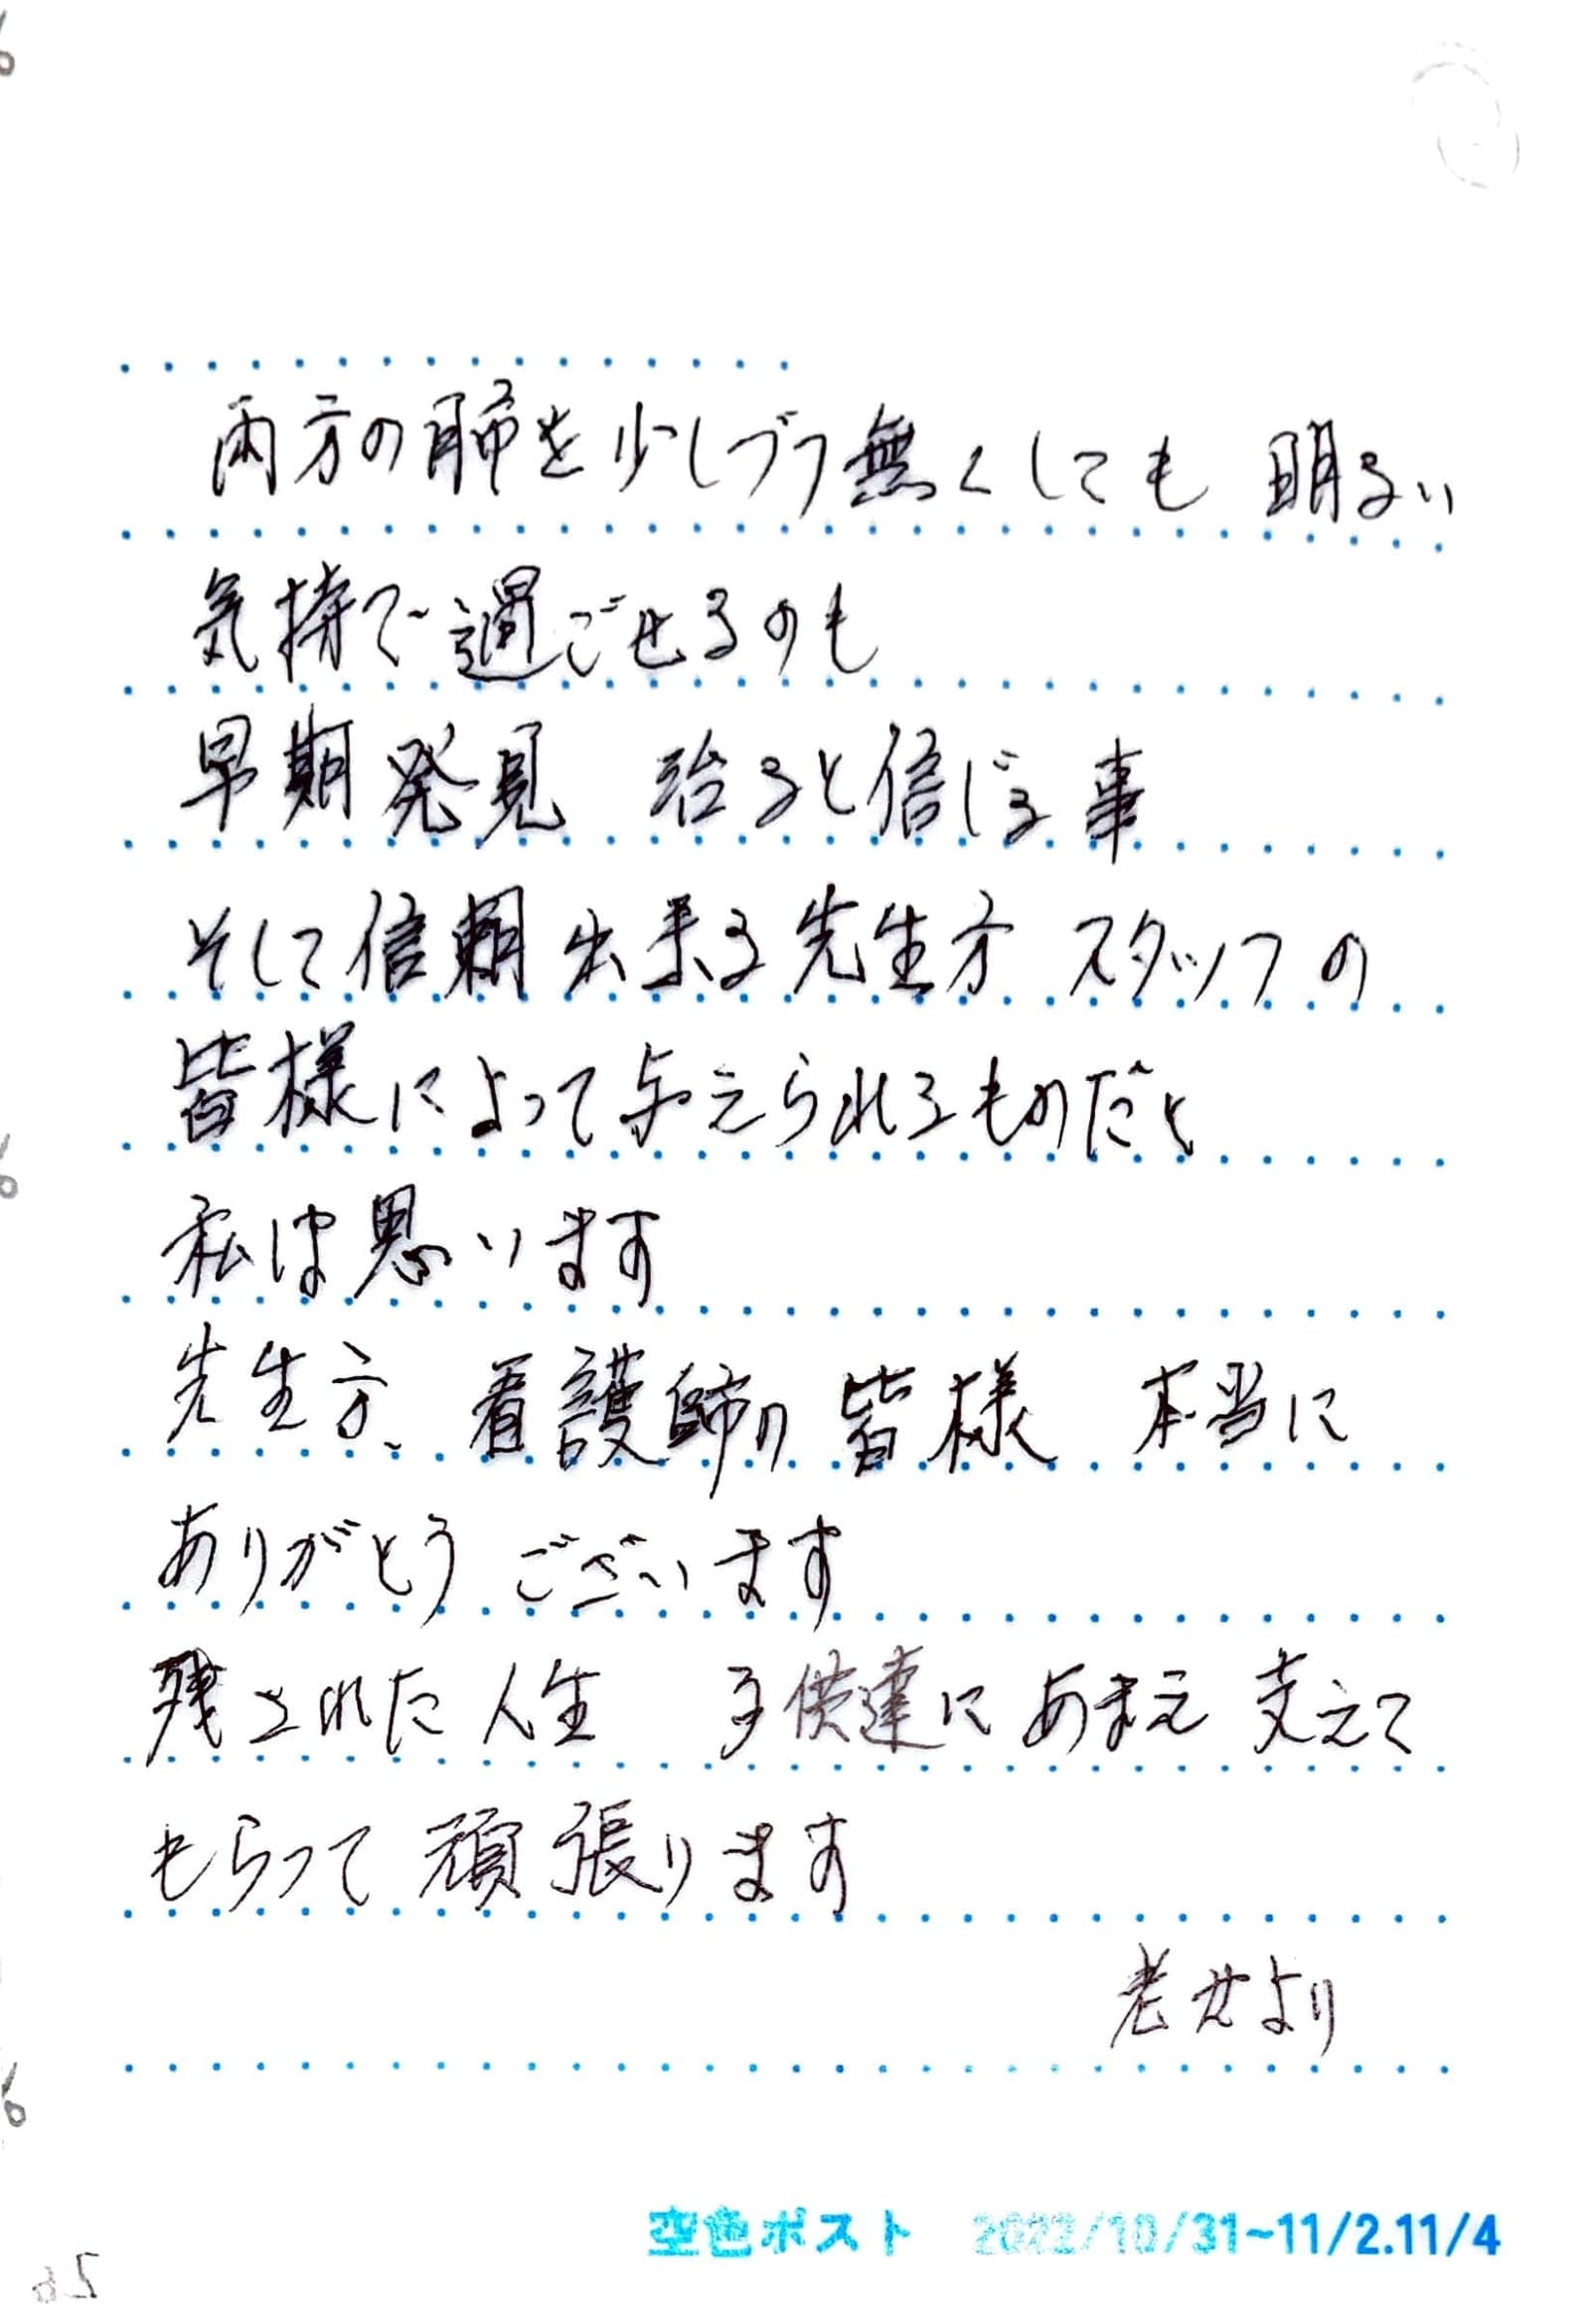 両方の肺を少しづつ無くしても 明るい
気持で過ごせるのも
早期発見 治ると信じる事
そして信頼出来る先生方 スタッフの
皆様によって与えられるものだと
私は思います
先生方、看護師の皆様 本当に
ありがとうございます
残された人生 子供達にあまえ支えて
もらって頑張ります
老女より
空色ポスト 2022/10/31~11/2.11/4